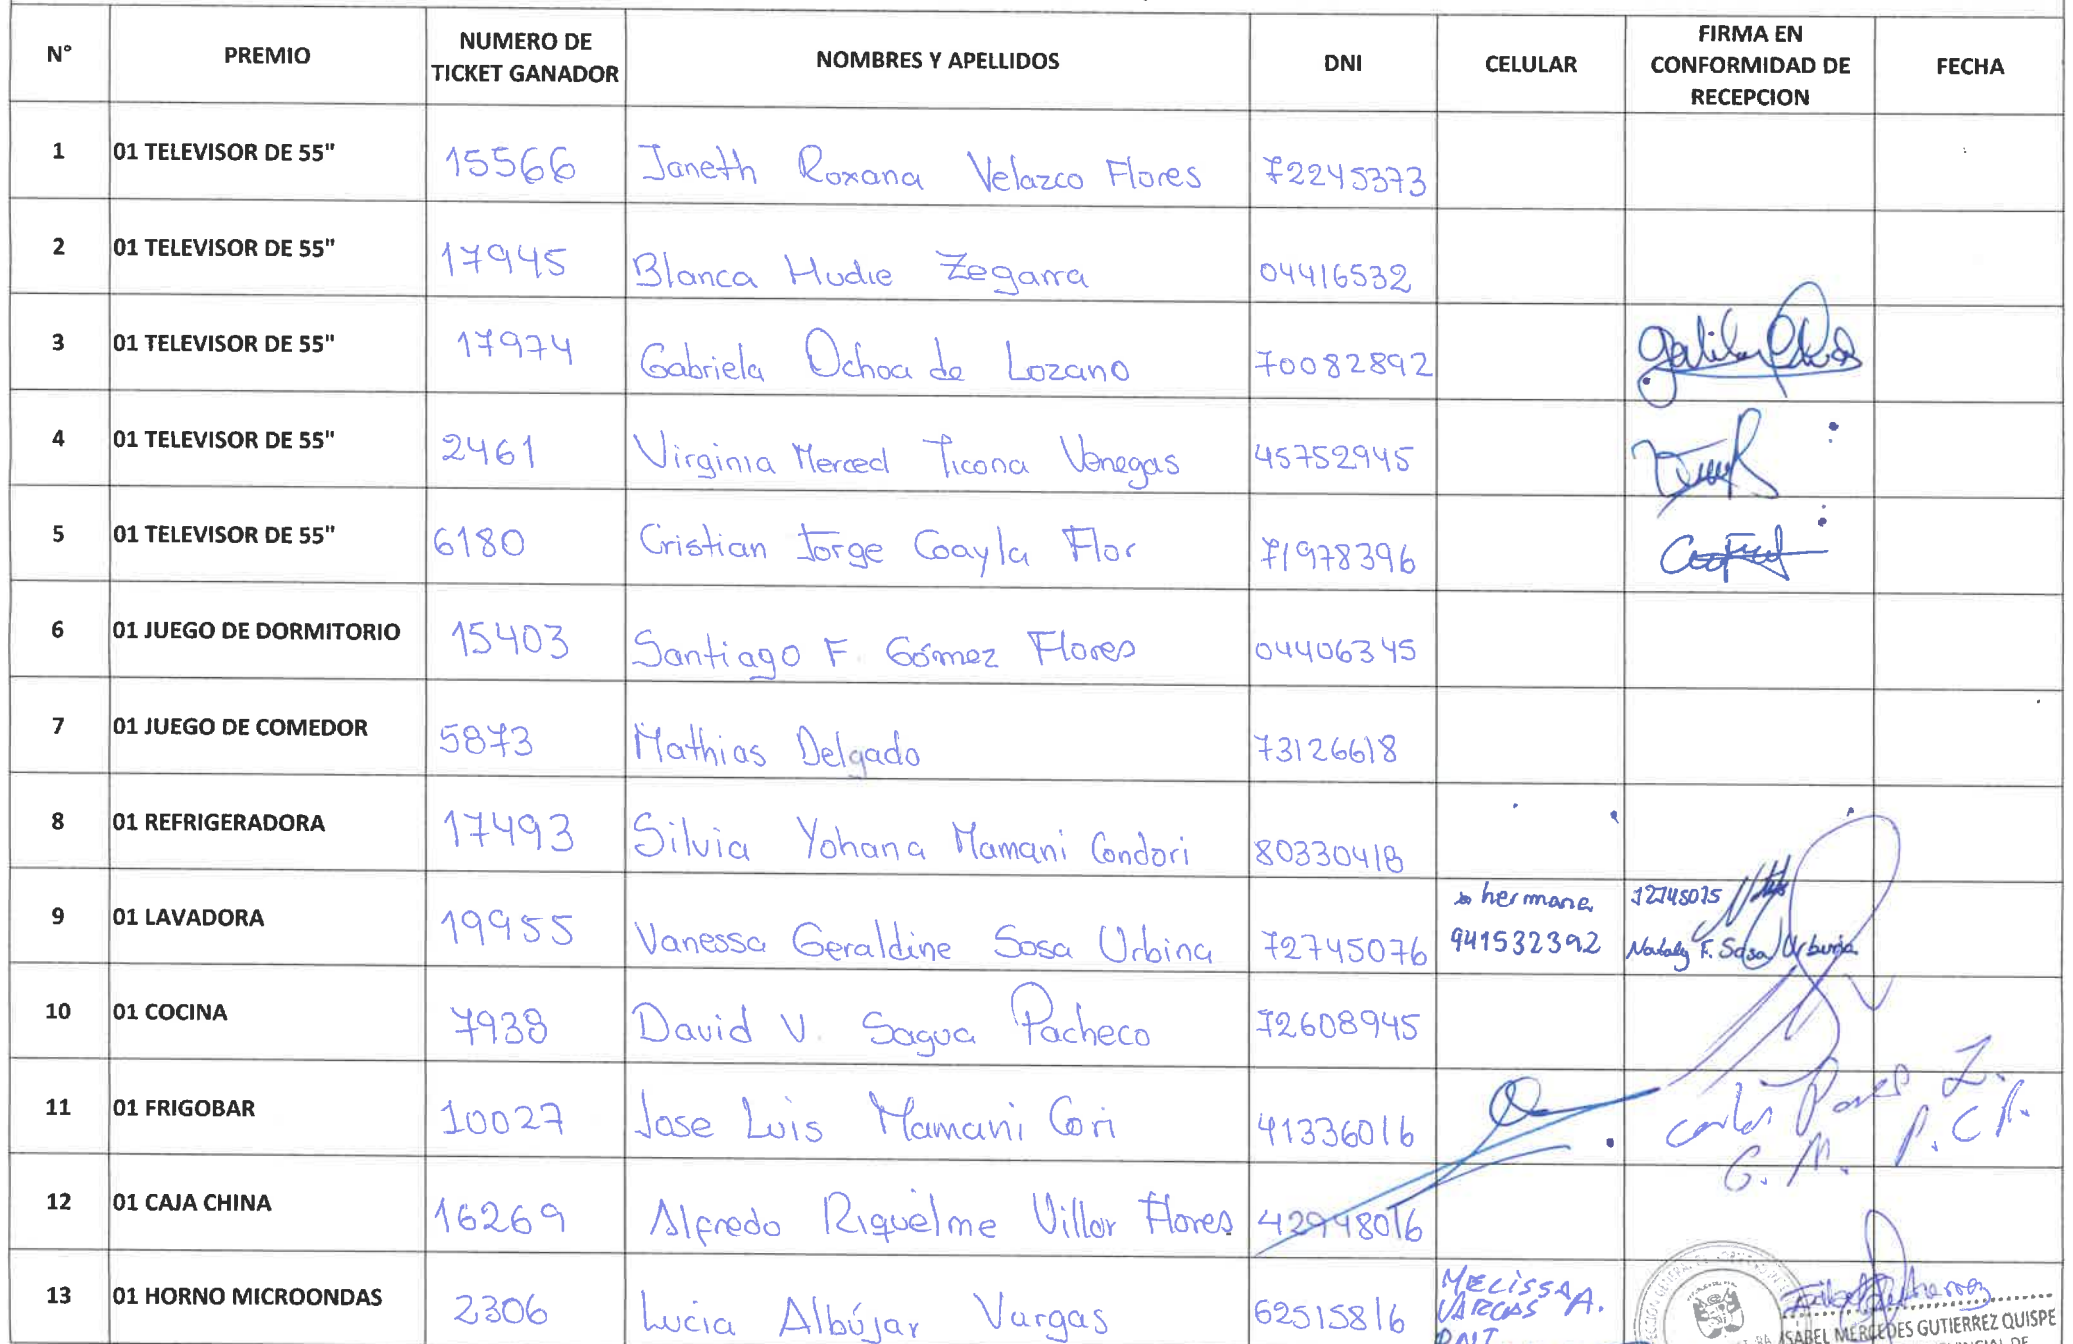 N° PREMIO NUMERO DE TICKET GANADOR NOMBRES Y APELLIDOS DNI CELULAR FIRMA EN CONFORMIDAD DE RECEPCION FECHA
1 01 TELEVISOR DE 55" 15566 Janeth Roxana Velazco Flores 72245373
2 01 TELEVISOR DE 55" 17945 Blanca Hudie Zegarra 04416532
3 01 TELEVISOR DE 55" 17974 Gabriela Ochoa de Lozano 70082892
4 01 TELEVISOR DE 55" 2461 Virginia Merced Ticona Venegas 45752945
5 01 TELEVISOR DE 55" 6180 Cristian Jorge Coayla Flor 71978396
6 01 JUEGO DE DORMITORIO 15403 Santiago F. Gómez Flores 04406345
7 01 JUEGO DE COMEDOR 5873 Mathias Delgado 73126618
8 01 REFRIGERADORA 17493 Silvia Yohana Mamani Condori 80330418
9 01 LAVADORA 19955 Vanessa Geraldine Sosa Urbina 72745076 hermana 941532392 72745075 Nataly F. Sosa Urbina
10 01 COCINA 7938 David V. Sagua Pacheco 72608945
11 01 FRIGOBAR 10027 Jose Luis Mamani Cori 41336016 Carlos Z.
G. M. P. C.
12 01 CAJA CHINA 16269 Alfredo Riquelme Villar Flores 42948016
13 01 HORNO MICROONDAS 2306 Lucia Albújar Vargas 62515816 MELISSA VARGAS A. DNI
ISABEL MERCEDES GUTIERREZ QUISPE